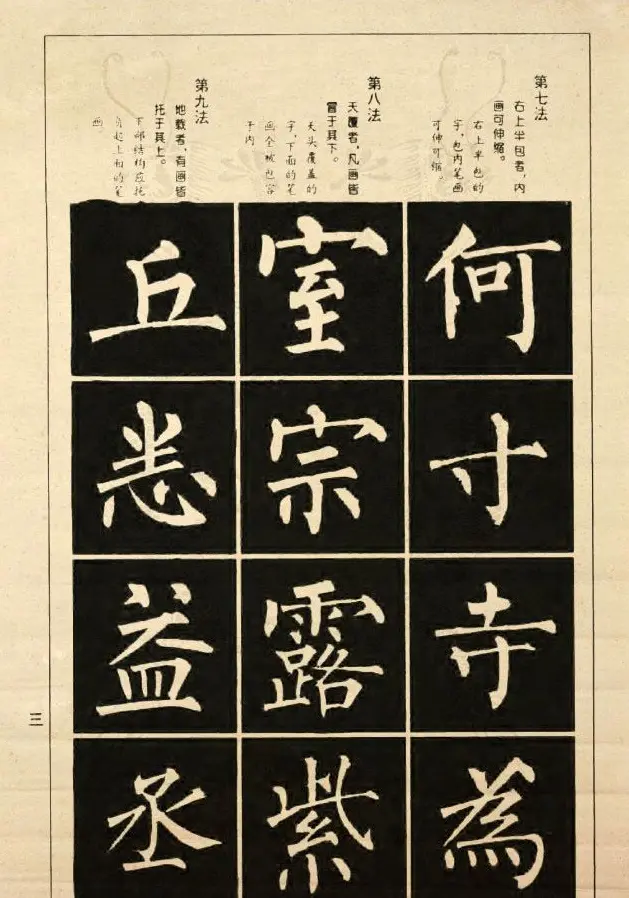 第七法
右上半包者，内
画可伸缩。
右上半包的
字，包内笔画
可伸可缩。
何
寸
寺
為
第八法
天覆者，凡画皆
冒于其下。
天头覆盖的
字，下面的笔
画全被包容
于内
室
宗
露
紫
第九法
地载者，有画皆
托于其上。
下部结构应托
负起上面的笔
画。
丘
恙
益
丞
三